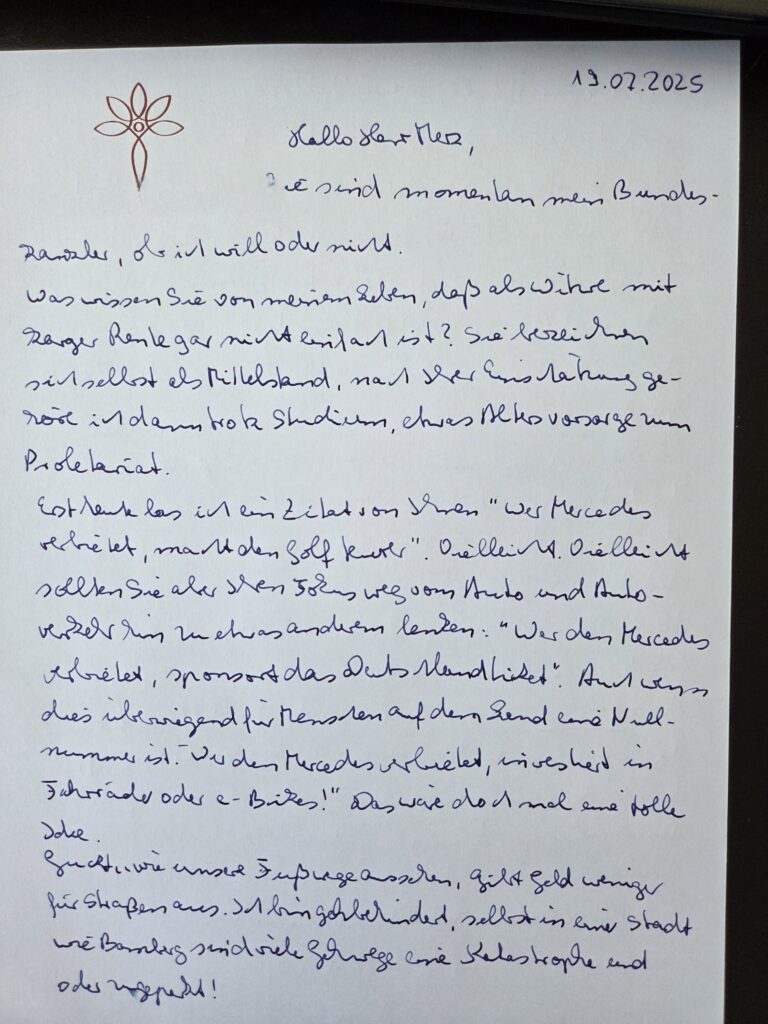 19.07.2025
Hallo Herr Merz,
Sie sind momentan mein Bundes-
kanzler, ob ich will oder nicht.
Was wissen Sie von meinem Leben, daß als Witwe mit
karger Rente gar nicht einfach ist? Sie bezeichnen
sich selbst als Mittelstand, nach Ihrer Einschätzung ge-
höre ich dann trotz Studium, etwas Altersvorsorge zum
Proletariat.
Erst heute las ich ein Zitat von Ihnen "Wer Mercedes
verbietet, macht den Golf teurer". Vielleicht. Vielleicht
sollten Sie aber Ihren Fokus weg vom Auto und Auto-
verkehr hin zu etwas anderem lenken: "Wer den Mercedes
verbietet, sponsort das Deutschlandticket". Auch wenn
dies überwiegend für Menschen auf dem Land eine Null-
nummer ist. "Wer den Mercedes verbietet, investiert in
Fahrräder oder e-Bikes!" Das wäre doch mal eine tolle
Idee.
Guckt, wie unsere Fußwege aussehen, gibt Geld weniger
für Straßen aus. Ich bin gehbehindert, selbst in einer Stadt
wie Bamberg sind viele Gehwege eine Katastrophe und
oder zugeparkt!